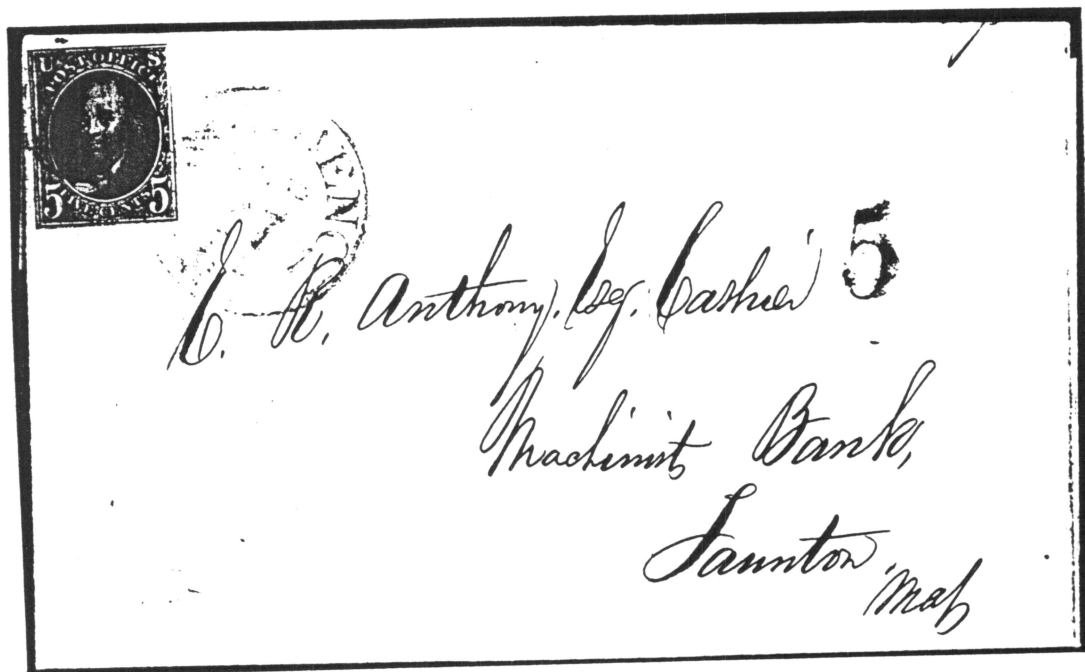 U S
POST OFFICE
5 FIVE CENTS 5
ENC
5
C. R. Anthony, Esq. Cashier
Machinists Bank,
Taunton,
Mass